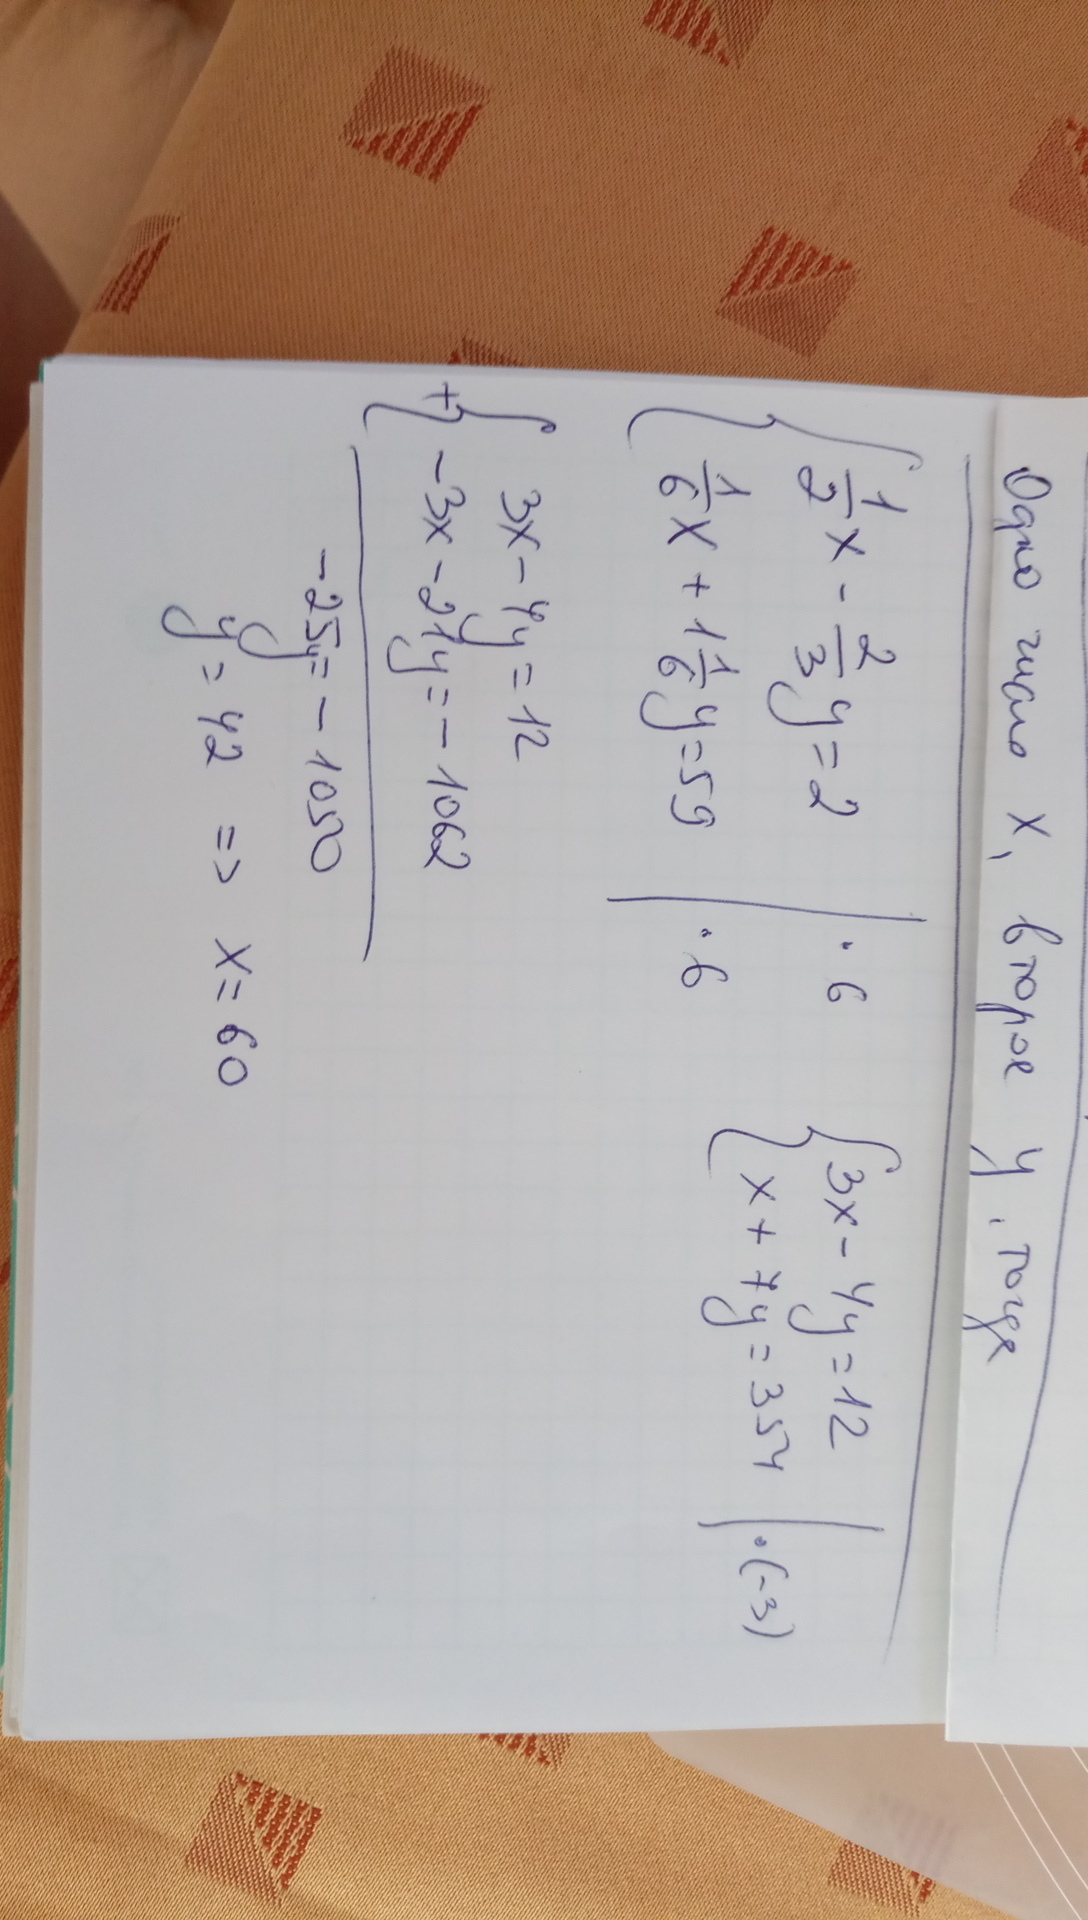 Одно число x, второе y, тогда
{ 1/2 x - 2/3 y = 2 | · 6
{ 1/6 x + 1 1/6 y = 59 | · 6
{ 3x - 4y = 12
{ x + 7y = 354 | · (-3)
+ { 3x - 4y = 12
{ -3x - 21y = - 1062
-25y = - 1050
y = 42 => x = 60